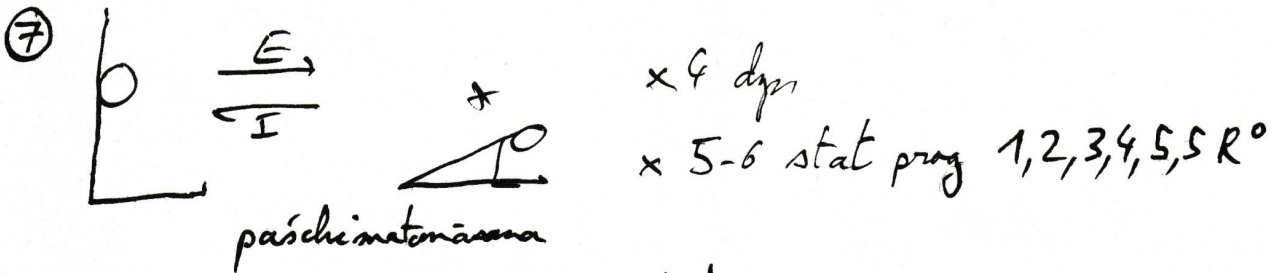 ⑦
E
I
x 4 dyn
x 5-6 stat prog 1,2,3,4,5,5 R°
paśchimatānāsana